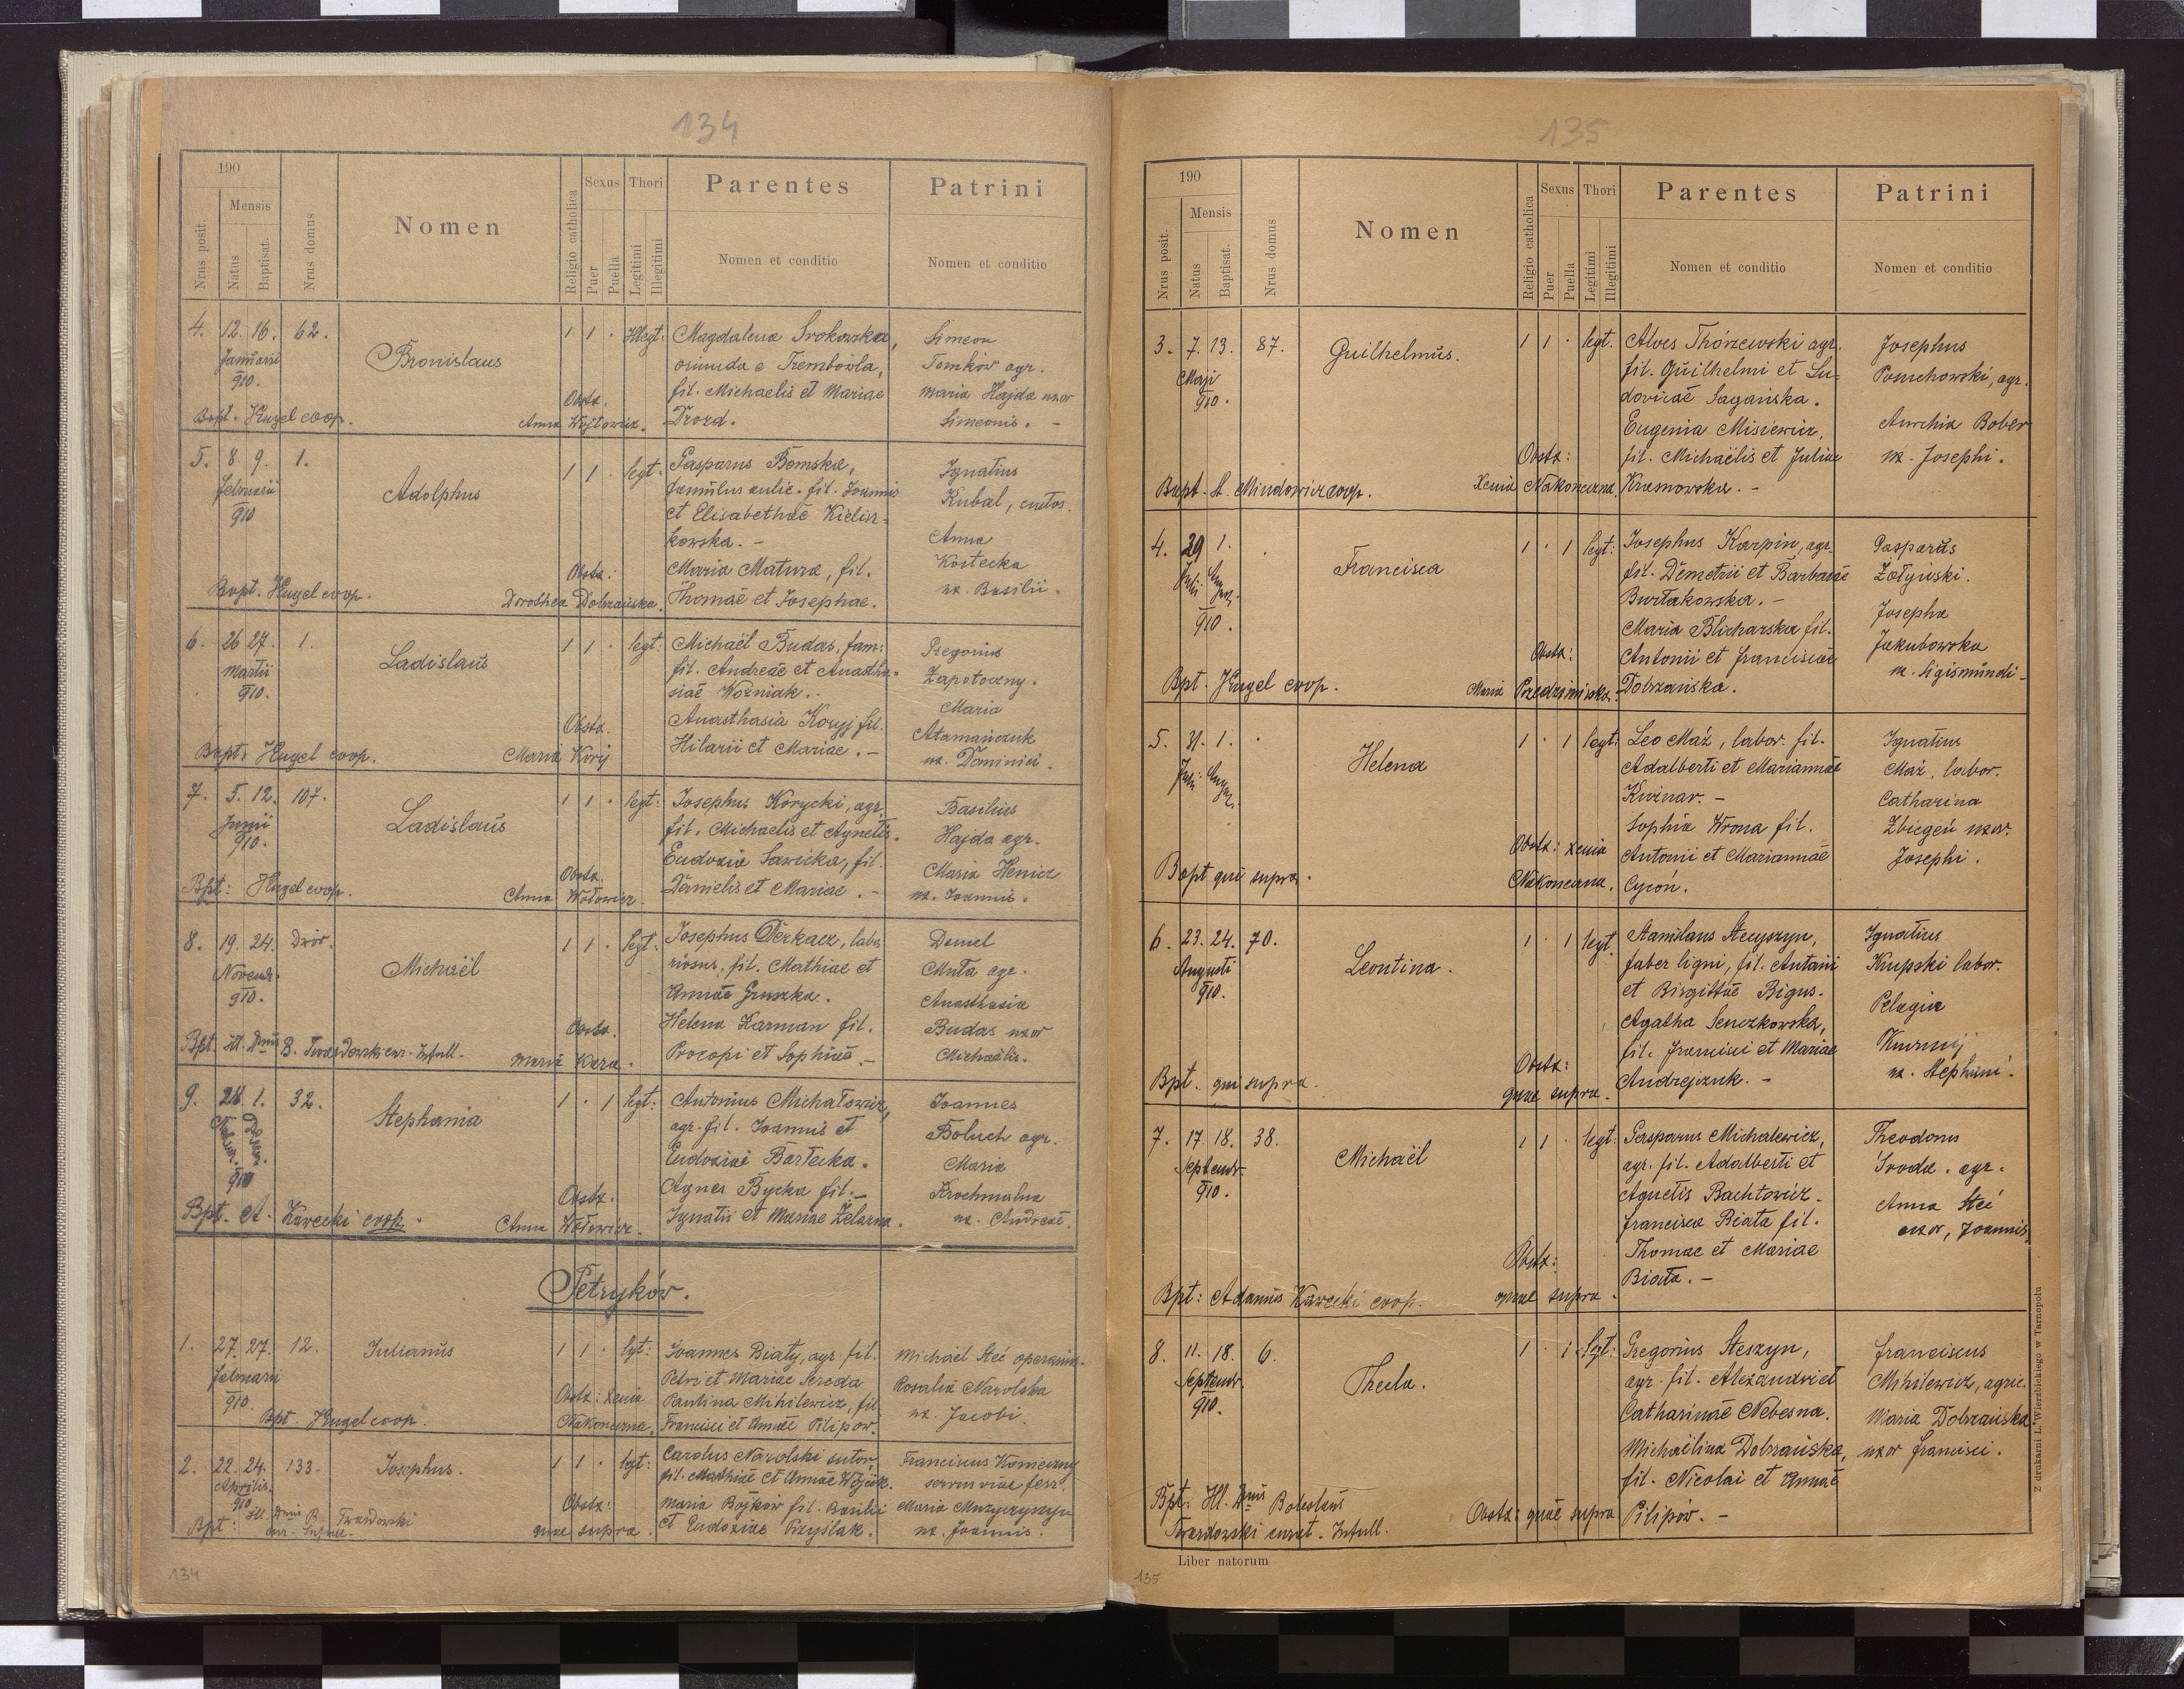 134
190
Nrus posit.
Mensis
Natus
Baptisat.
Nrus domus
Nomen
Religio catholica
Sexus
Puer
Puella
Thori
Legitimi
Illegitimi
Parentes
Nomen et conditio
Patrini
Nomen et conditio
4. 12. 16. 62.
Januarii
910.
Bronislaus
1 1 · Illegt:
Magdalena Srokowska,
oriunda e Trembowla,
fil. Michaelis et Mariae
Drozd.
Simeon
Tomków agr.
Maria Hajda uxor
Simeonis. -
Obstx.
Anna Wojtowicz.
Bapt. Kugel coop.
5. 8. 9. 1.
Februarii
910
Adolphus
1 1 · legt:
Gasparus Bomska,
famulus aulic. fil. Joannis
et Elisabethae Kielin-
kowska. -
Maria Matura, fil.
Thomae et Josephae.
Ignatius
Kubal, custos.
Anna
Kostecka
ux. Basilii.
Obstx:
Dorothea Dobrzańska.
Bapt. Kugel coop.
6. 26 27. 1.
Martii
910.
Ladislaus
1 1 · legt:
Michaël Budas, fam:
fil. Andreae et Anastha-
siae Woźniak. -
Anasthasia Koryj fil.
Hilarii et Mariae. -
Gregorius
Zapotoczny.
Maria
Atamańczuk
ux. Dominici.
Obstx.
Maria Kirij
Bapt: Kugel coop.
7. 5. 12. 107.
Junii
910.
Ladislaus
1 1 · legt:
Josephus Korycki, agr.
fil. Michaelis et Agnetis.
Eudoxia Sawicka, fil.
Danielis et Mariae. -
Basilius
Hajda agr.
Maria Henicz
ux. Joannis.
Obstx.
Anna Wołowicz.
Bpt: Kugel coop.
8. 19. 24. Dwór.
Novembr.
910.
Michaël
1 1 · legt.
Josephus Derkacz, labo-
riosus, fil. Mathiae et
Annae Gruszka.
Helena Karman fil.
Procopi et Sophiae. -
Daniel
Muta agr.
Anasthasia
Budas uxor
Michaëlis.
Obstx.
Maria Kara.
Bpt. Ill. Dnus B. Twardowski cur. Infull.
9. 28. 1. 32.
910
Stephania
1 · 1 legt:
Antonius Michałowicz,
agr. fil. Joannis et
Eudoxiae Bartecka.
Agnes Bycka fil. -
Ignatii et Mariae Żelazna.
Joannes
Boluch agr.
Maria
Krochmalna
ux. Andreae.
Obstx.
Anna Wołowicz.
Bpt. A. Kawecki coop.
Petryków.
1. 27. 27. 12.
Februarii
910.
Julianus
1 1 · lgt:
Joannes Biały, agr. fil.
Petri et Mariae Sereda
Paulina Mihilewicz, fil.
Francisci et Annae Pilipow.
Michaël Stec operarius.
Rosalia Narolska
ux. Jacobi.
Obstx: Xenia
Nakoneczna.
Bpt. Kugel coop.
2. 22. 24. 133.
Aprilis
910
Josephus.
1 1 · legt:
Carolus Narolski sutor,
fil. Mathiae et Annae Wójcik.
Maria Bojków fil. Basilii
et Eudoxiae Przyślak.
Franciscus Konieczny
servus viae ferr.
Maria Muzyczyszyn
ux. Joannis.
Obstx:
quae supra.
Bpt: Ill. Dnus B. Twardowski
cur. Infull.
134
135
190
Nrus posit.
Mensis
Natus
Baptisat.
Nrus domus
Nomen
Religio catholica
Sexus
Puer
Puella
Thori
Legitimi
Illegitimi
Parentes
Nomen et conditio
Patrini
Nomen et conditio
3. 7. 13. 87.
Maji
910.
Guilhelmus.
1 1 · legt.
Aloes Thórzewski agr.
fil. Guilhelmi et Lu-
dovicae Sagańska.
Eugenia Misiewicz,
fil. Michaëlis et Juliae
Krasnowska. -
Josephus
Posuchowski, agr.
Anna Bober
ux. Josephi.
Obstx:
Xenia Nakoneczna.
Bapt. A. Mindowicz coop.
4. 29 1. ·
Juli Aug.
910.
Francisca
1 · 1 legt:
Josephus Karpin, agr.
fil. Demetrii et Barbarae
Burtakowska. -
Maria Blicharska fil.
Antonii et Franciscae
Dobrzańska.
Gasparus
Zołyński.
Josepha
Jakubowska
ux. Sigismundi -
Obstx:
Maria Przedzimirska.
Bpt. Kugel coop.
5. 31. 1. ·
Juli August.
Helena
1 · 1 legt:
Leo Maź, labor. fil.
Adalberti et Mariannae
Kuźnar. -
Sophia Wrona fil.
Antonii et Mariannae
Cycoń.
Ignatius
Maź, labor.
Catharina
Zbiegeń uxor.
Josephi.
Obstx: Xenia
Nakoneczna.
Bapt qui supra.
6. 23. 24. 70.
Augusti
910.
Leontina.
1 · 1 legt.
Stanislaus Stecyszyn,
faber ligni, fil. Antonii
et Birgittae Bigus.
Agatha Senczkowska,
fil. Francisci et Mariae
Andrejczuk. -
Ignatius
Krupski labor.
Pelagia
ux. Stephani.
Obstx:
quae supra.
Bpt. qui supra.
7. 17. 18. 38.
Septembr.
910.
Michaël
1 1 · legt:
Gasparus Michalewicz,
agr. fil. Adalberti et
Agnetis Bachtowicz.
Francisca Biała fil.
Thomae et Mariae
Biała. -
Theodorus
Sroda. agr.
Anna Steć
uxor, Joannis.
Obstx:
quae supra.
Bpt: Adamus Kawecki coop.
8. 11. 18. 6.
Septembr.
910.
Thecla.
1 · 1 lgt:
Gregorius Steszyn,
agr. fil. Alexandri et
Catharinae Nebesna.
Michaëlina Dobrzańska,
fil. Nicolai et Annae
Pilipów. -
Franciscus
Mihilewicz, agric.
Maria Dobrzańska
uxor Francisci.
Obstx: quae supra
Bpt: Ill. Dnus Boleslaus
Twardowski curat. Infull.
Liber natorum
Z drukarni L. Wierzbickiego w Tarnopolu
135